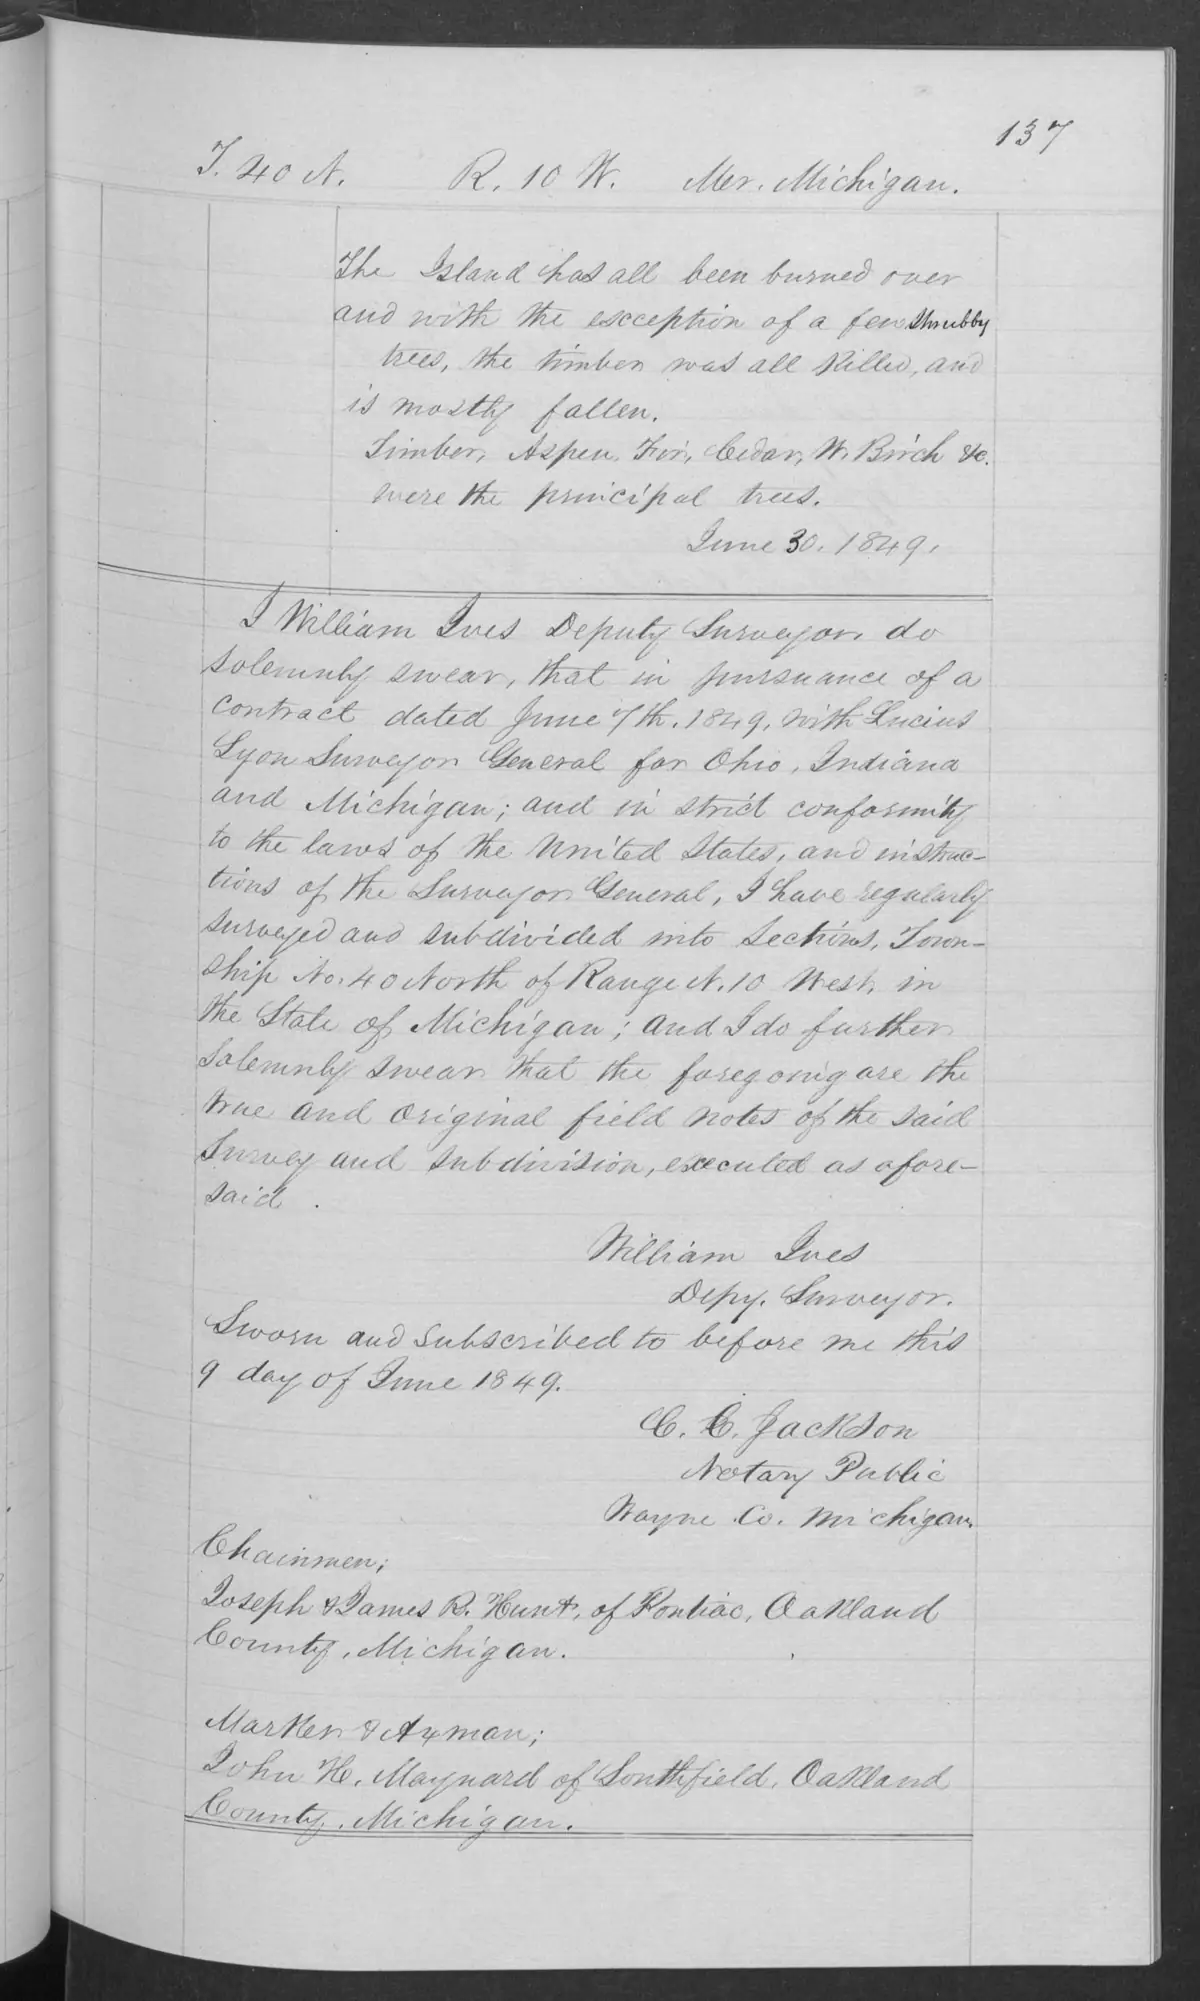 137
T. 40 N. R. 10 W. Mer. Michigan.
The Island has all been burned over
and with the exception of a few shrubby
trees, the timber was all killed, and
is mostly fallen.
Timber, Aspen, Fir, Cedar, W. Birch &c.
were the principal trees.
June 30. 1849.
I William Ives Deputy Surveyor, do
solemnly swear, that in pursuance of a
contract dated June 7th. 1849, with Lucius
Lyon Surveyor General for Ohio, Indiana
and Michigan; and in strict conformity
to the laws of the United States, and instruc-
tions of the Surveyor General, I have regularly
surveyed and subdivided into Sections, Town-
ship No. 40 North of Range N. 10 West, in
the State of Michigan; and I do further
solemnly swear that the foregoing are the
true and original field notes of the said
Survey and subdivision, executed as afore-
said.
William Ives
Depy. Surveyor.
Sworn and subscribed to before me this
9 day of June 1849.
C. C. Jackson
Notary Public
Wayne Co. Michigan.
Chainmen;
Joseph & James R. Hunt, of Pontiac, Oakland
County, Michigan.
Marker & Axman;
John H. Maynard of Southfield, Oakland
County, Michigan.